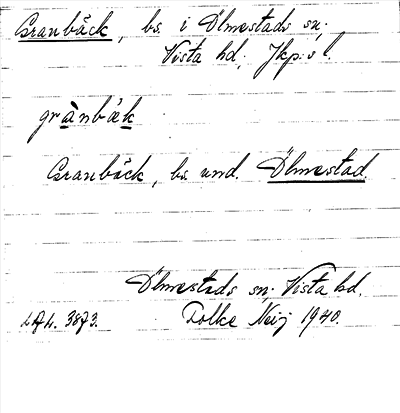 Granbäck, bs. i Ölmestads sn;
Vista hd; Jkp:s l.
grànbäk
Granbäck, bs. und. Ölmestad.
Ölmestads sn; Vista hd.
Folke Neij 1940.